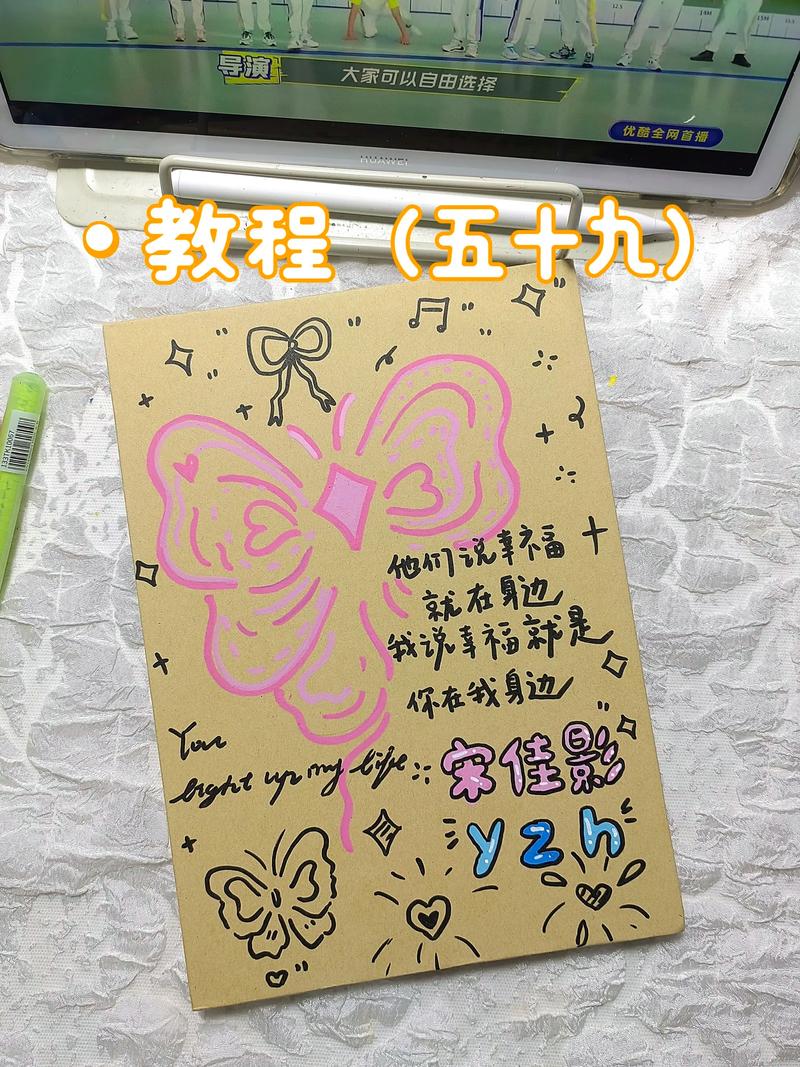 导演
大家可以自由选择
优酷全网首播
HUAWEI
•教程（五十九）
1337K10067
他们说幸福
就在身边
我说幸福就是
你在我身边
You
light up my life::
宋佳影
yzh